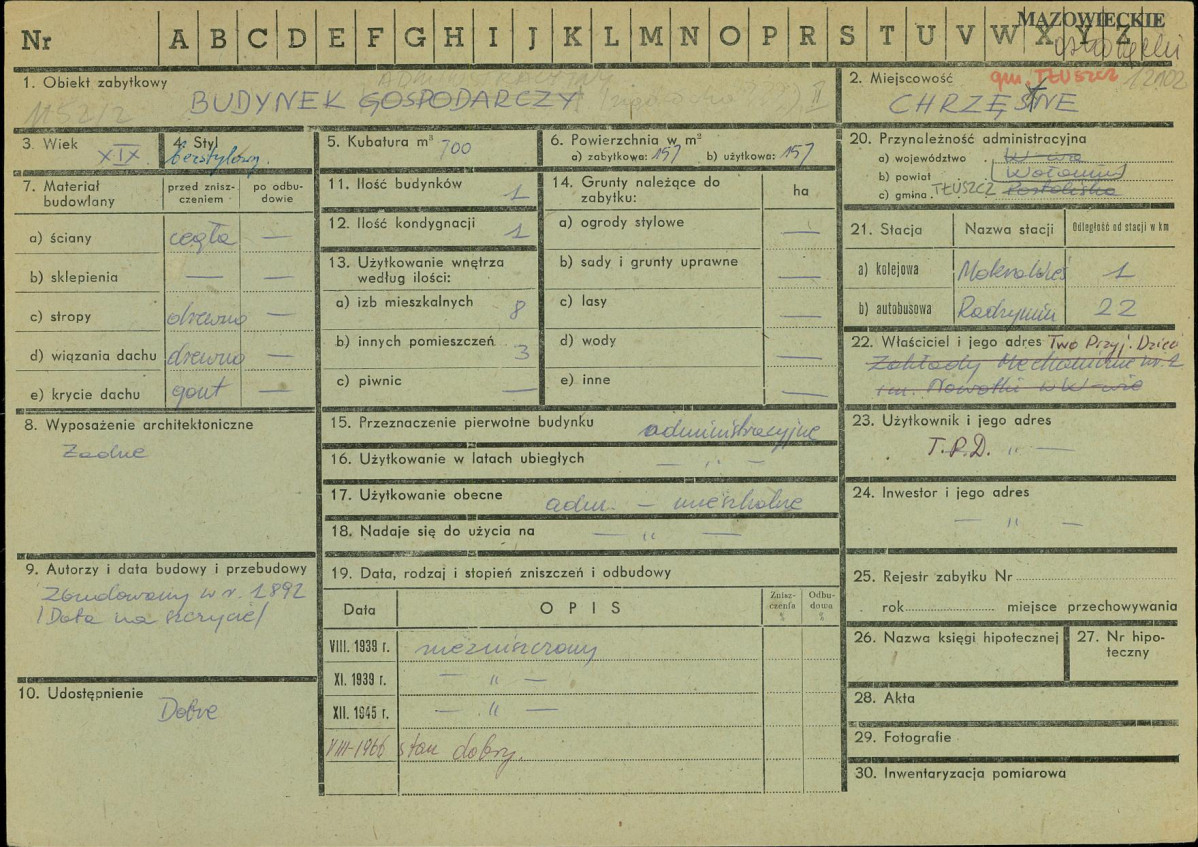 MAZOWIECKIE
Nr A B C D E F G H I J K L M N O P R S T U V W X Y Z
1. Obiekt zabytkowy
1152/2
BUDYNEK GOSPODARCZY
II
2. Miejscowość
gm. TŁUSZCZ
CHRZĘSNE
3. Wiek
XIX
4. Styl
bezstylowy.
5. Kubatura m³ 700
6. Powierzchnia w m²
a) zabytkowa: 157 b) użytkowa: 157
7. Materiał budowlany
przed zniszczeniem
po odbudowie
a) ściany cegła —
b) sklepienia — —
c) stropy drewno —
d) wiązania dachu drewno —
e) krycie dachu gont —
8. Wyposażenie architektoniczne
Żadne
9. Autorzy i data budowy i przebudowy
Zbudowany w r. 1892
/Data na szczycie/
10. Udostępnienie
Dobre
11. Ilość budynków 1
12. Ilość kondygnacji 1
13. Użytkowanie wnętrza
według ilości:
a) izb mieszkalnych 8
b) innych pomieszczeń 3
c) piwnic —
14. Grunty należące do
zabytku:
ha
a) ogrody stylowe —
b) sady i grunty uprawne —
c) lasy —
d) wody —
e) inne —
15. Przeznaczenie pierwotne budynku administracyjne
16. Użytkowanie w latach ubiegłych — „ —
17. Użytkowanie obecne adm. – mieszkalne
18. Nadaje się do użycia na — „ —
19. Data, rodzaj i stopień zniszczeń i odbudowy
Data
OPIS
Zniszczenia %
Odbudowa %
VIII. 1939 r. niezniszczony
XI. 1939 r. — „ —
XII. 1945 r. — „ —
VIII-1966 stan dobry.
20. Przynależność administracyjna
a) województwo W-wa
b) powiat Wołomin
c) gmina TŁUSZCZ Postoliska
21. Stacja
Nazwa stacji
Odległość od stacji w km
a) kolejowa 1
b) autobusowa Radzymin 22
22. Właściciel i jego adres Two Przyj. Dzieci
Zakłady Mechaniczne nr. 2
im. Nowotki w W-wie
23. Użytkownik i jego adres
T.P.D. „ —
24. Inwestor i jego adres
— „ —
25. Rejestr zabytku Nr
rok miejsce przechowywania
26. Nazwa księgi hipotecznej
27. Nr hipoteczny
28. Akta
29. Fotografie
30. Inwentaryzacja pomiarowa